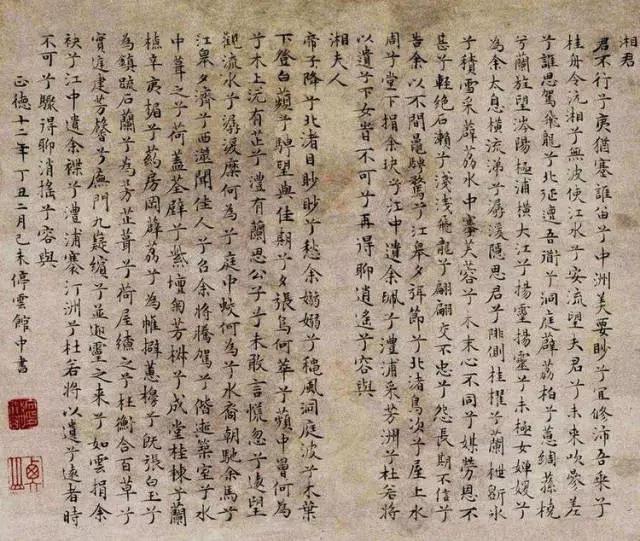 湘君
君不行兮夷猶蹇誰留兮中洲美要眇兮宜修沛吾乘兮
桂舟令沅湘兮無波使江水兮安流望夫君兮未來吹參差
兮誰思駕飛龍兮北征邅吾道兮洞庭薜荔柏兮蕙綢蓀橈
兮蘭旌望涔陽極浦橫大江兮揚靈揚靈兮未極女嬋媛兮
為余太息橫流涕兮潺湲隱思君兮陫側桂櫂兮蘭枻斲冰
兮積雪采薜荔水中搴芙蓉兮木末心不同兮媒勞恩不
甚兮輕絕石瀨兮淺淺飛龍兮翩翩交不忠兮怨長期不信兮
告余以不閒鼂騁騖兮江皋夕弭節兮北渚鳥次兮屋上水
周兮堂下捐余玦兮江中遺余珮兮澧浦采芳洲兮杜若將
以遺兮下女旹不可兮再得聊逍遙兮容與
湘夫人
帝子降兮北渚目眇眇兮愁余嫋嫋兮穐風洞庭波兮木葉
下登白薠兮騁望與佳期兮夕張鳥何萃兮蘋中罾何為
兮木上沅有芷兮澧有蘭思公子兮未敢言慌忽兮遠望
觀流水兮潺湲麋何為兮庭中蛟何為兮水裔朝馳余馬兮
江皋夕濟兮西澨聞佳人兮召余將騰駕兮偕逝築室兮水
中葺之兮荷蓋荃壁兮紫壇匊芳椒兮成堂桂棟兮蘭
橑辛夷楣兮葯房罔薜荔兮為帷擗蕙櫋兮既張白玉兮
為鎮疏石蘭兮為芳芷葺兮荷屋繚之兮杜衡合百草兮
實庭建芳馨兮廡門九嶷繽兮並迎靈之來兮如雲捐余
袂兮江中遺余褋兮澧浦搴汀洲兮杜若將以遺兮遠者時
不可兮驟得聊消搖兮容與
正德十二年丁丑二月己未停雲館中書